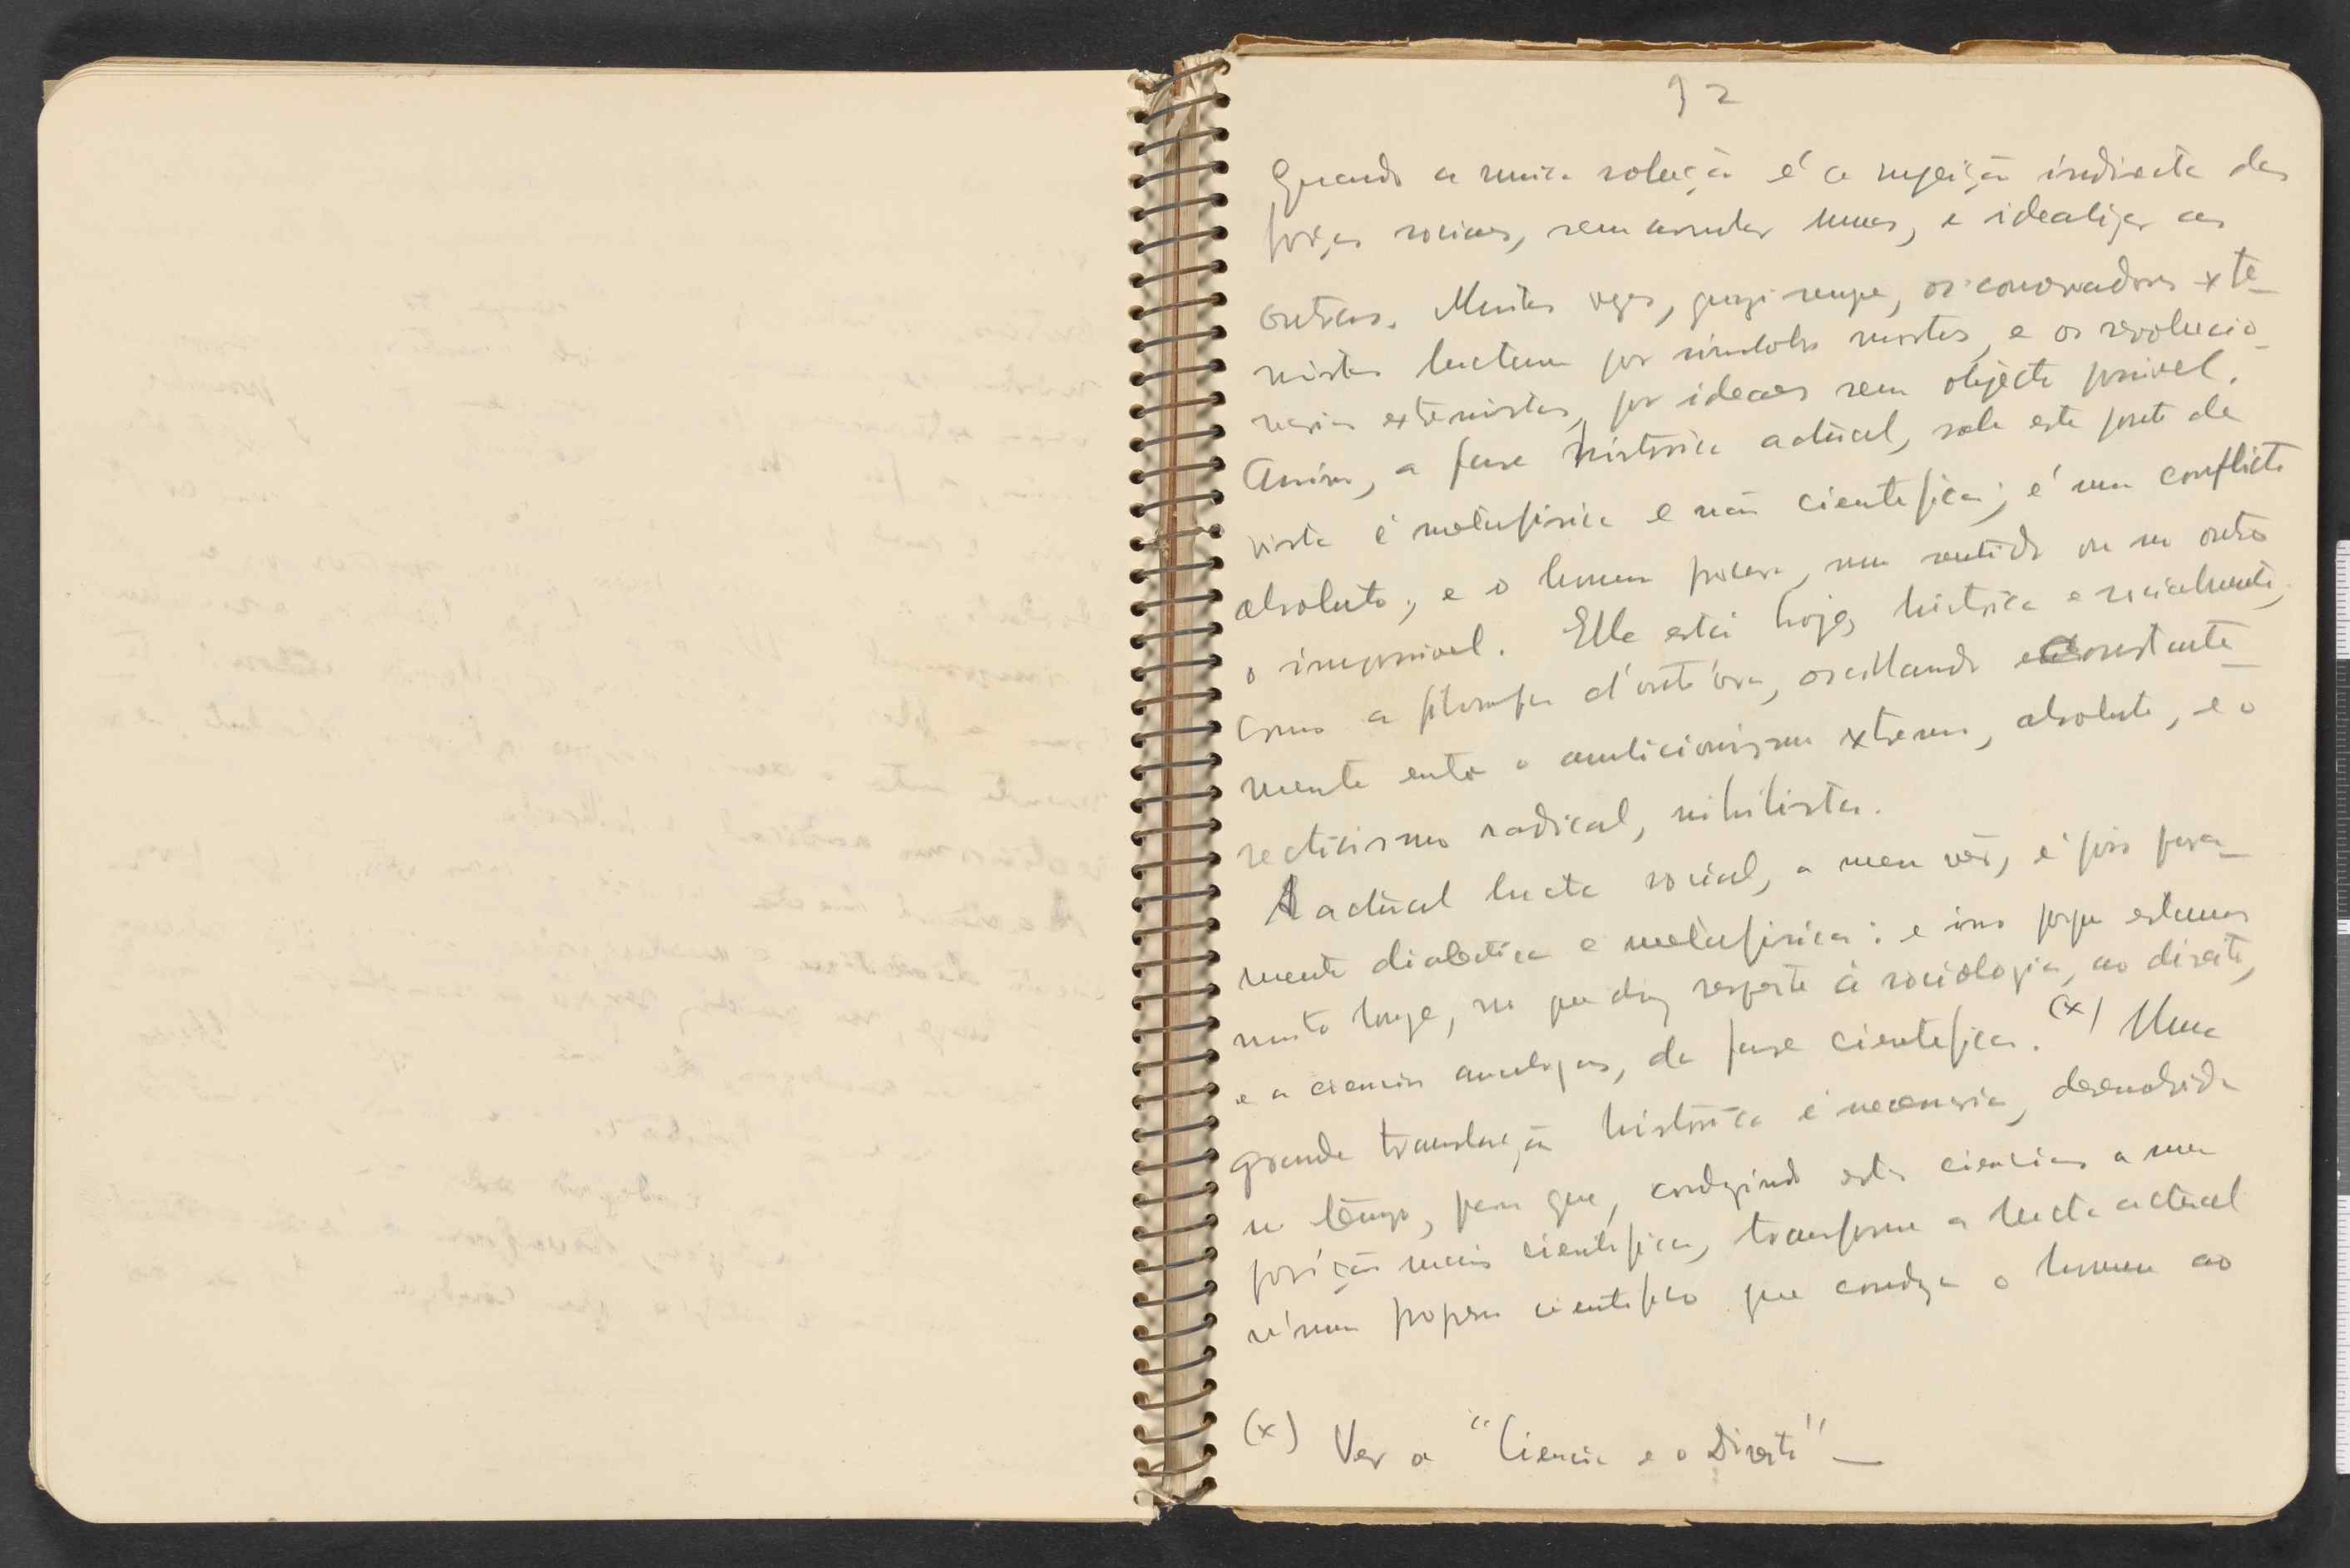 32
Quando a unica solução é a sujeição indirecta das
forças sociaes, sem annular umas, e idealizar as
outras. Muitas vezes, quazi sempre, os conservadores extre-
mistas luctam por simbolos mortos, e os revolucio-
narios extremistas, por ideaes sem objecto possivel.
Assim, a fase historica actual, sob este ponto de
vista é metafisica e não cientifica; é um conflicto
absoluto; e o homem procura, num sentido ou no outro
o impossivel. Elle está hoje, historica e socialmente,
como a filosofia d'outr'ora, oscillando constante-
mente entre o extremo, absoluto, e o
scticismo radical, nihilista.
A actual lucta social, a meu vêr, é pois pura-
mente dialectica e metafisica: e isso porque estamos
muito longe, no que diz respeito á sociologia, ao direito,
e a ciencias analogas, da fase cientifica. (x) Uma
grande translação historica é necessaria, desenvolvida
no tempo, para que, conduzindo estas ciencias a uma
posição mais cientifica, transforme a lucta actual
n'um cientifico que conduza o homem ao
(x) Ver a "Ciencia e o Direito" —